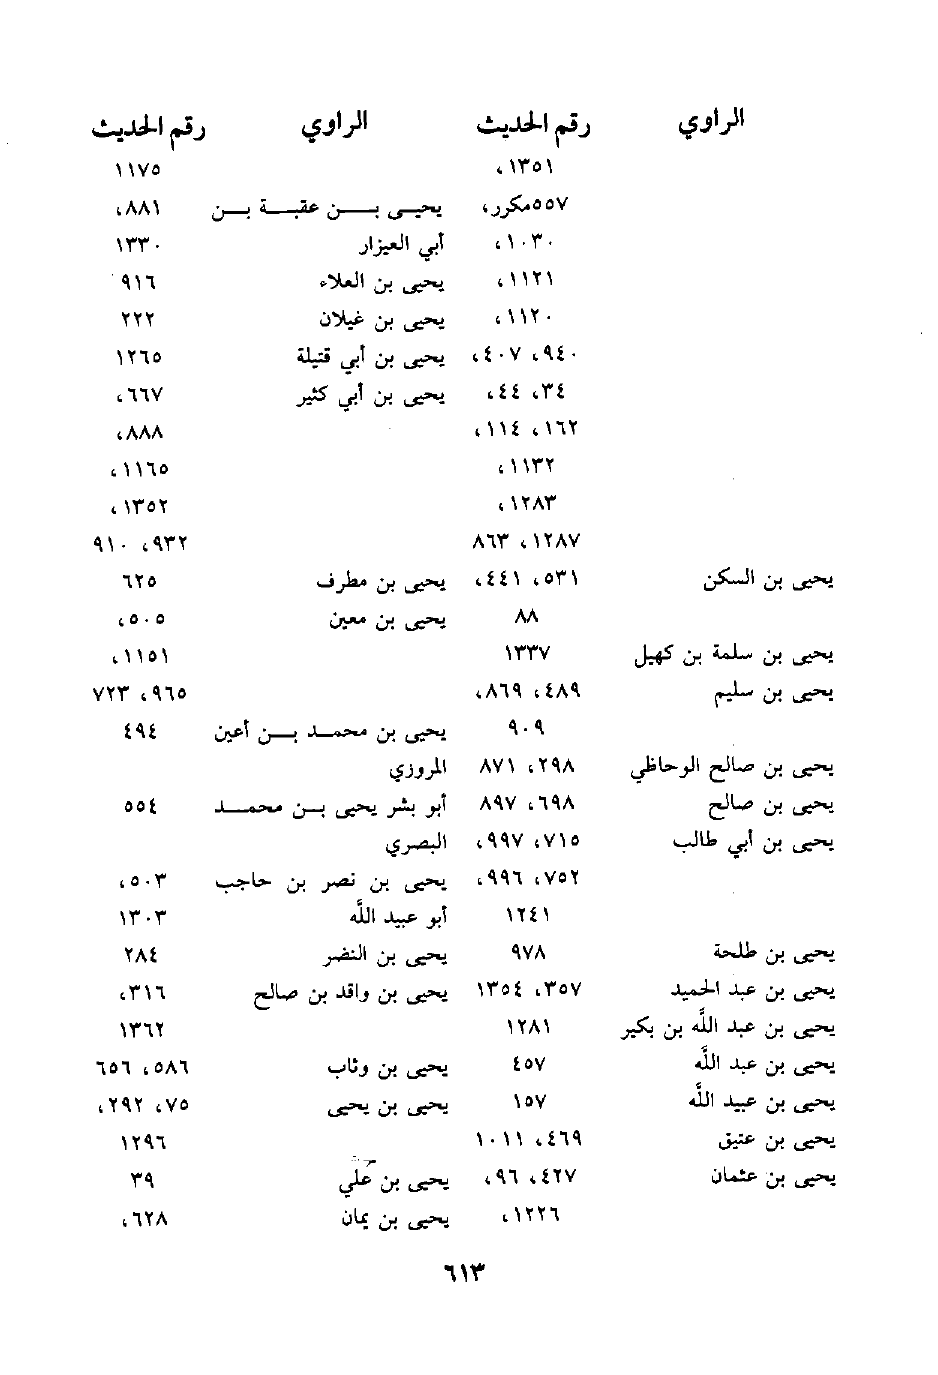 الراوي رقم الحديث
١٣٥١،
٥٥٧مكرر،
١٠٣٠،
١١٢١،
١١٢٠،
٩٤٠، ٤٠٧،
٣٤، ٤٤،
١٦٢، ١١٤،
١١٣٢،
١٢٨٣،
١٢٨٧، ٨٦٣
يحيى بن السكن ٥٣١، ٤٤١،
٨٨
يحيى بن سلمة بن كهيل ١٣٣٧
يحيى بن سليم ٤٨٩، ٨٦٩،
٩٠٩
يحيى بن صالح الوحاظي ٢٩٨، ٨٧١
يحيى بن صالح ٦٩٨، ٨٩٧
يحيى بن أبي طالب ٧١٥، ٩٩٧،
٧٥٢، ٩٩٦،
١٢٤١
يحيى بن طلحة ٩٧٨
يحيى بن عبد الحميد ٣٥٧، ١٣٥٤
يحيى بن عبد اللَّه بن بكير ١٢٨١
يحيى بن عبد اللَّه ٤٥٧
يحيى بن عبيد اللَّه ١٥٧
يحيى بن عتيق ٤٦٩، ١٠١١
يحيى بن عثمان ٤٢٧، ٩٦،
١٢٢٦،
الراوي رقم الحديث
١١٧٥
يحيى بن عقبة بن ٨٨١،
أبي العيزار ١٣٣٠
يحيى بن العلاء ٩١٦
يحيى بن غيلان ٢٢٢
يحيى بن أبي قتيلة ١٢٦٥
يحيى بن أبي كثير ٦٦٧،
٨٨٨،
١١٦٥،
١٣٥٢،
٩٣٢، ٩١٠
يحيى بن مطرف ٦٢٥
يحيى بن معين ٥٠٥،
١١٥١،
٩٦٥، ٧٢٣
يحيى بن محمد بن أعين ٤٩٤
المروزي
أبو بشر يحيى بن محمد ٥٥٤
البصري
يحيى بن نصر بن حاجب ٥٠٣،
أبو عبيد اللَّه ١٣٠٣
يحيى بن النضر ٢٨٤
يحيى بن واقد بن صالح ٣١٦،
١٣٦٢
يحيى بن وثاب ٥٨٦، ٦٥٦
يحيى بن يحيى ٧٥، ٢٩٢،
١٢٩٦
يحيى بن علي ٣٩
يحيى بن يمان ٦٢٨،
٦١٣